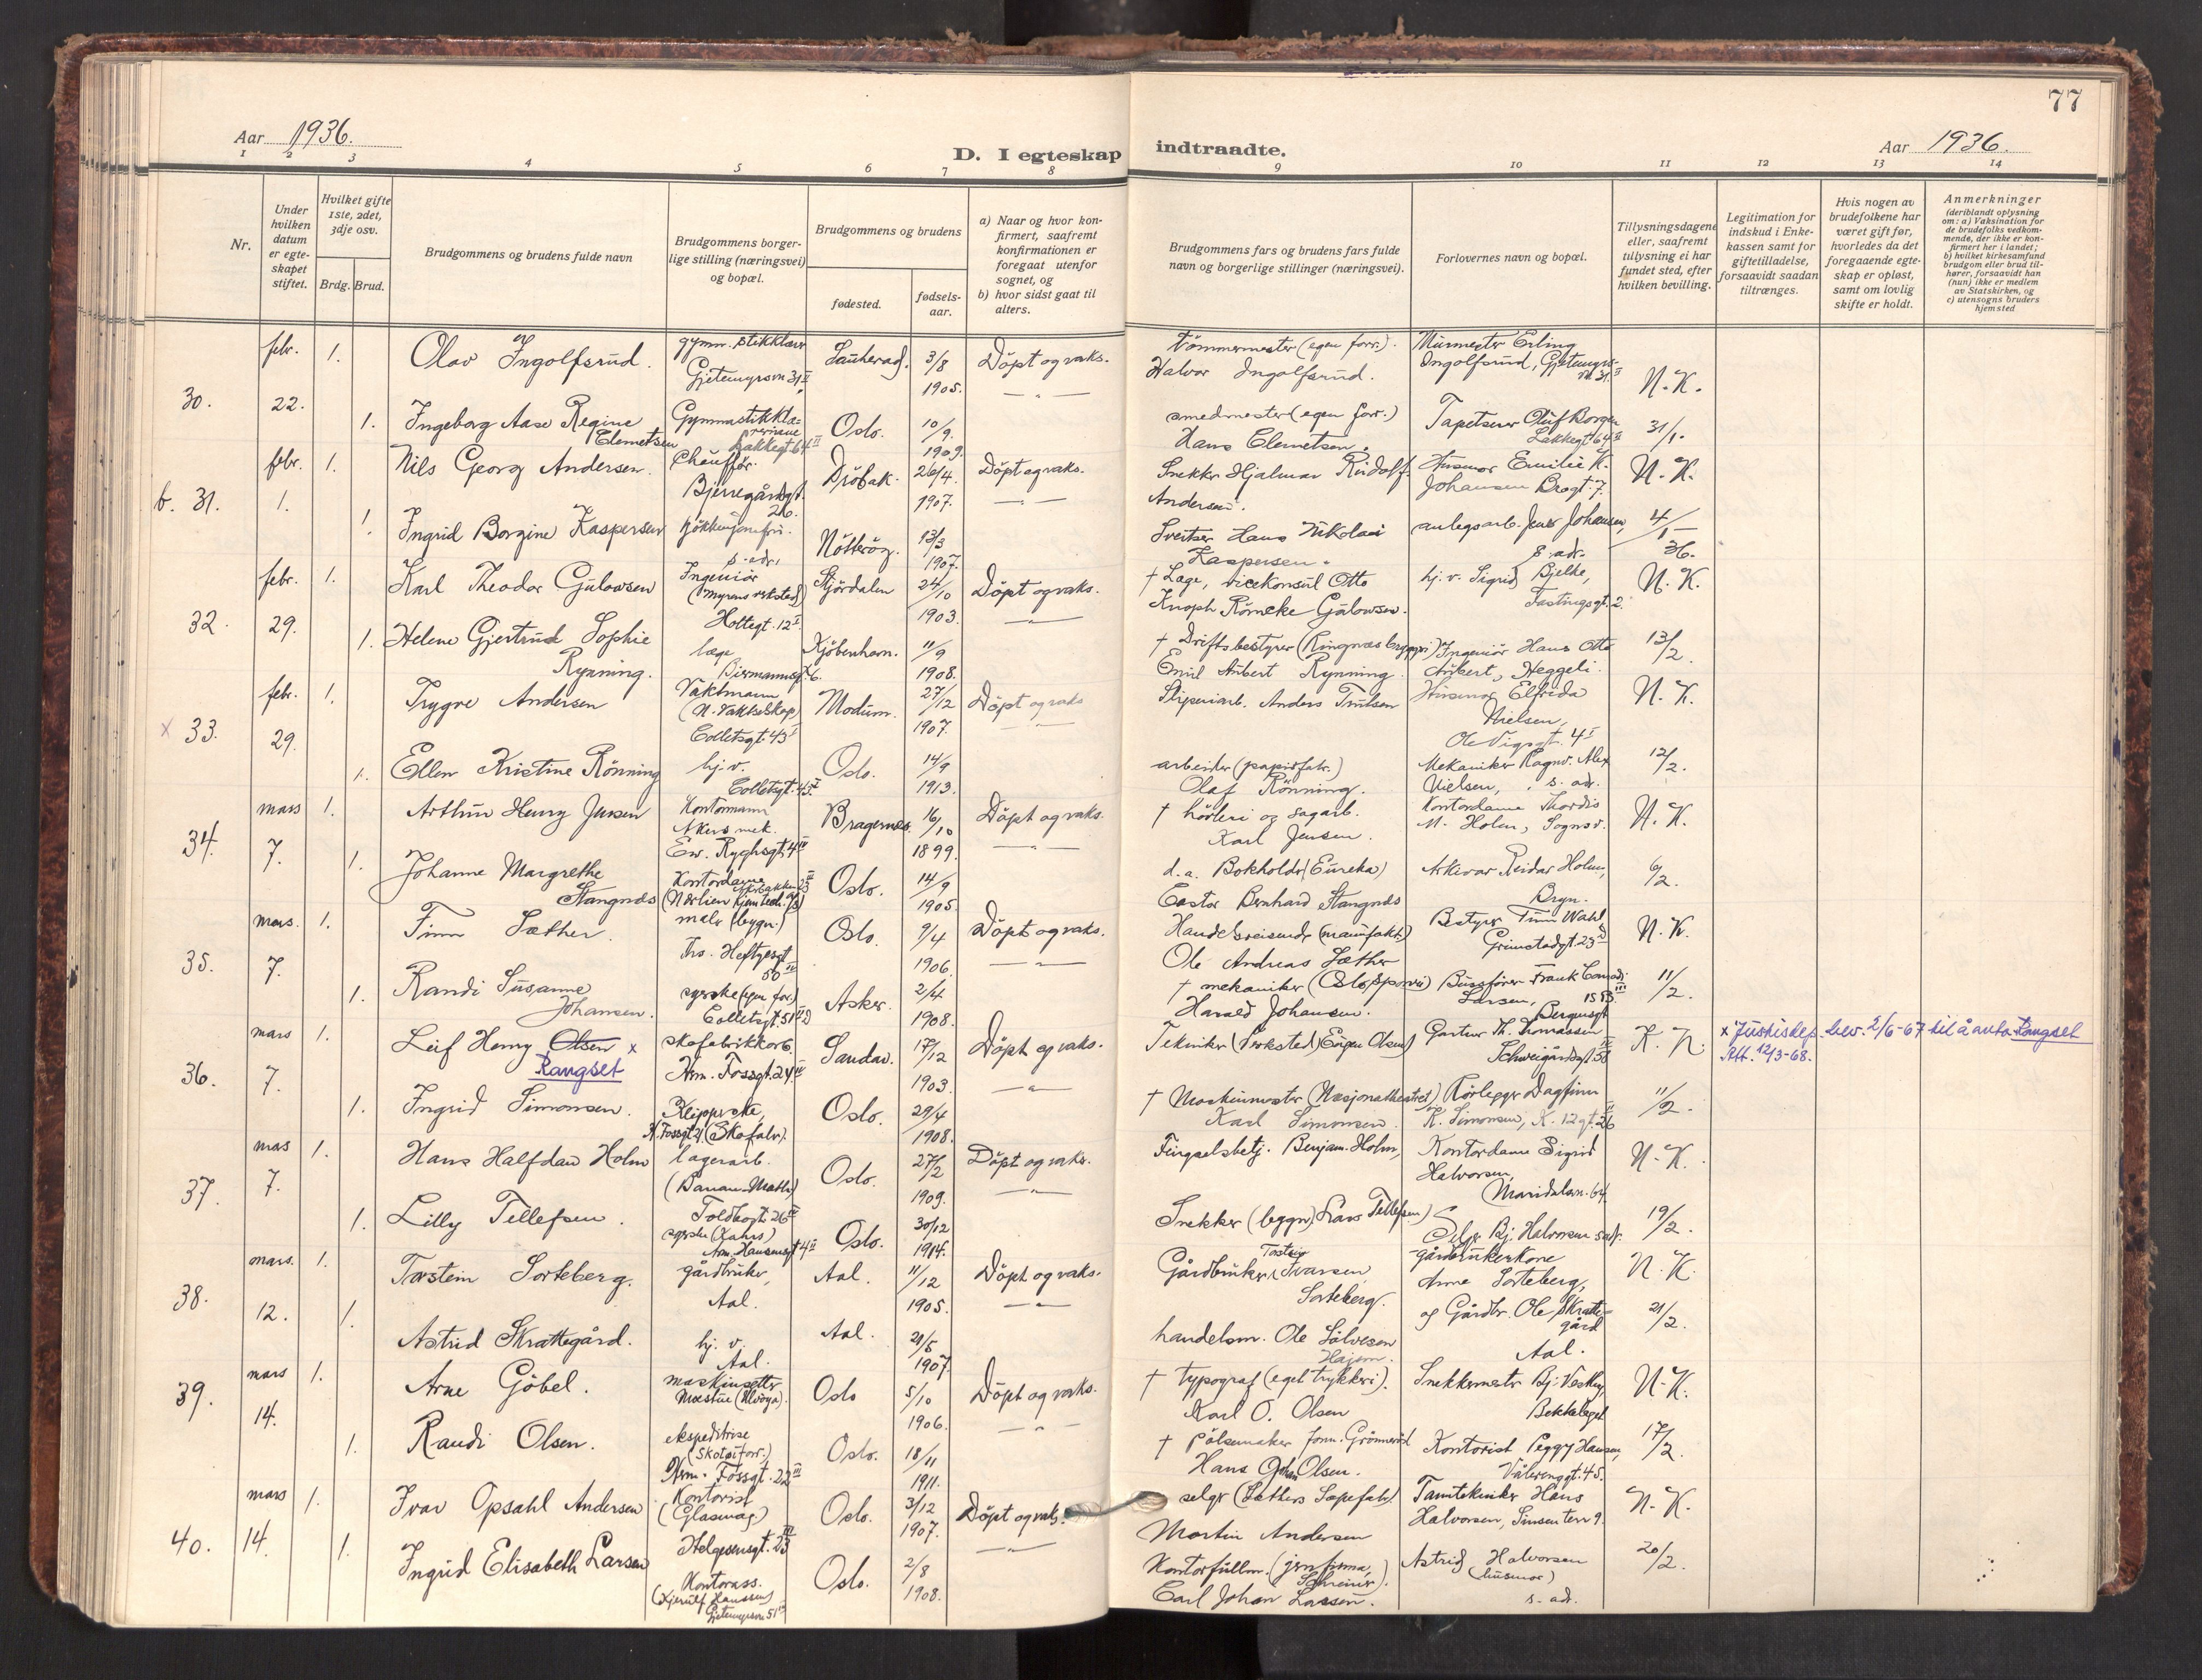 77
Aar 1936.
D. I egteskap indtraadte.
Aar 1936.
1 2 3 4 5 6 7 8 9 10 11 12 13 14
Nr.
Under hvilken datum er egteskapet stiftet.
Hvilket gifte 1ste, 2det, 3dje osv.
Brdg. Brud.
Brudgommens og brudens fulde navn
Brudgommens borgerlige stilling (næringsvei) og bopæl.
Brudgommens og brudens
fødested.
fødselsaar.
a) Naar og hvor konfirmert, saafremt konfirmationen er foregaat utenfor sognet, og
b) hvor sidst gaat til alters.
Brudgommens fars og brudens fars fulde navn og borgerlige stillinger (næringsvei).
Forlovernes navn og bopæl.
Tillysningsdagene eller, saafremt tillysning ei har fundet sted, efter hvilken bevilling.
Legitimation for indskud i Enkekassen samt for giftetilladelse, forsaavidt saadan tiltrænges.
Hvis nogen av brudefolkene har været gift før, hvorledes da det foregaaende egteskap er opløst, samt om lovlig skifte er holdt.
Anmerkninger
(deriblandt oplysning om: a) Vaksination for de brudefolks vedkommende, der ikke er konfirmert her i landet; b) hvilket kirkesamfund brudgom eller brud tilhører, forsaavidt han (hun) ikke er medlem av Statskirken, og c) utensogns bruders hjemsted
30. febr. 22. 1. Olav Ingolfsrud. Gjetemyrsvn 31 II Sauherad. 3/8 1905. Döpt og vaks. tömmermester (egen forr.). Halvor Ingolfsrud. Murmester Erling Ingolfsrud, Gjetemyrsvn. 31. II N. K.
1. Ingeborg Aase Regine Clemetsen Lakkegt 64 II Oslo. 10/9. 1909. — " — smedmester (egen forr.) Hans Clemetsen. Tapetserer Oluf Borgen Lakkegt 64 II 31/1.
b. 31. febr. 1. 1. Nils Georg Andersen. Chauffør. Bjerregårdsgt. 26. Dröbak. 26/4. 1907. Döpt og vaks. Snekker Hjalmar Rudolf Andersen. Husmor Emilie K. Johansen Brogt. 7. N. K.
1. Ingrid Borgine Kaspersen s. adr. Nötteröy. 13/3 1907. — " — Sveitser Hans Nikolai Kaspersen. anlegsarb. Jens Johansen, s. adr. 4/1 36.
32. febr. 29. 1. Karl Theodor Gulowsen Ingeniör (Myrens verksted) Holtegt. 12 I. Stjördalen 24/10 1903. Döpt og vaks. † Læge, vicekonsul Otto Knoph Römcke Gulowsen. hj. v. Sigrid Bjelke, Fastingsgt. 2. N. K.
1. Helene Gjertrud Sophie Rynning. læge Biermannsgt. 6. Kjöbenhavn. 11/9 1908. — " — † Driftsbestyrer (Ringnæs bryggeri) Emil Aubert Rynning. Ingeniör Hans Otto Aubert, Heggeli. 13/2.
x 33. febr. 29. 1. Trygve Andersen Vaktmann (N. Vaktselskap) Colletsgt. 43 I Modum. 27/12 1907. Döpt og vaks Sliperiarb. Anders Trulsen Husmor Elfrida Nielsen, Ole Vigsgt. 4 I N. K.
1. Ellen Kristine Rönning hj. v. Colletsgt. 43 I. Oslo. 14/9 1913. — " — arbeider (papirfabr.) Olaf Rönning. Mekaniker Ragnv. Alex Nielsen, s. adr. 12/2.
34. mars 7. 1. Arthur Henry Jensen Kontormann Akers mek. Ew. Ryghsgt. 4 IV Bragernes. 16/10 1899. Döpt og vaks. † hövleri og sagarb. Karl Jensen. Kontordame Thordis M. Holm, Sognsv. N. K.
1. Johanne Margrethe Stangnds Kontordame Oslo. 14/9 1905. — " — d. a. Bokholder (Eureka) Castor Bernhard Stangnds Arkivar Reidar Holm, Bryn. 6/2.
35. mars. 7. 1. Finn Sæther. maler (bygn.) Ths. Heftyesgt 50 IV Oslo. 9/4 1906. Döpt og vaks. Handelsreisende (manufakt.) Ole Andreas Sæther Bestyrer Finn Wahl Grimstadgt. 23 N. K.
1. Randi Susanne Johansen. syerske (egen forr.) Colletsgt. 51 Asker. 2/4 1908. — " — † mekaniker (Oslo Sporvei) Harald Johansen. Bussförer Frank Conrad Larsen, Bergensgt 11/2.
36. mars 7. 1. Leif Henry Olsen x Rangset skofabrikkarb. Arm. Fossgt. 24 III Sandar. 17/12 1903. Döpt og vaks. Tekniker (Verksted) Eigen Olsen Gartner Th. Thomassen Schweigårdsgt. 58 N. K. x Justisdep. bev. 2/6-67 til å anta Rangset Aft. 12/3-68.
1. Ingrid Simonsen. Klipperske, A. Fossgt. 21. (Skofabr.). Oslo. 29/4 1908. — " — † Maskinmester (Nasjonalteatret) Karl Simonsen. Rörlegger Dagfinn K. Simonsen, K. 12 gt. 26 11/2.
37. mars 7. 1. Hans Halfdan Holm lagerarb. (Banan-Matth.) Toldbogt. 26 III Oslo. 27/2 1909. Döpt og vaks. Fengselsbetj. Benjam. Holm, Kontordame Sigrid Halvorsen, Maridalsvn. 64. N. K.
1. Lilly Tellefsen. syerske Arm. Hansensgt 4 II Oslo. 30/12 1914. — " — Snekker (bygn.) Lars Tellefsen) Selger Bj. Halvorsen s. adr. 19/2.
38. mars. 12. 1. Torstein Sorteberg. gårdbruker, Aal. Aal. 11/12 1905. Döpt og vaks. Gårdbruker Torstein Ivarsen Sorteberg. gårdbrukerkone Anne Sorteberg, N. K.
1. Astrid Skrattegård. hj. v. Aal. Aal. 21/5 1907. — " — handelsm. Ole Sölvesen Hajem. og Gårdbr. Ole Skrattegård Aal. 21/2.
39. mars 14. 1. Arne Göbel. maskinsetter Moestue (Ulvöya). Oslo 5/10 1906. Döpt og vaks. † typograf (eget trykkeri). Karl O. Olsen Snekkermester Bj. Vestby, Bekkelaget N. K.
1. Randi Olsen. ekspeditrise (Skotöiforr.) Arm. Fossgt. 22 III Oslo. 18/11 1911. — " — † Pölsemaker Hans Johan Olsen. Kontorist Peggy Hansen, Vålerenggt. 45. 17/2.
40. mars 14. 1. Ivar Opsahl Andersen Kontorist (Glasmag.) Helgesensgt. 23 III Oslo. 3/12 1907. Döpt og vaks. selger (Sæthers Såpefabr.) Martin Andersen Tanntekniker Hans Halvorsen, Sinsen terr 9. N. K.
1. Ingrid Elisabeth Larsen Kontorass. (Kjerulf Hanssen) Gjetemyrsvn 51 Oslo. 2/8 1908. — " — Kontorfullm. (jernfirma, Schreiner). Carl Johan Larsen. Astrid Halvorsen (husmor) s. adr. 20/2.